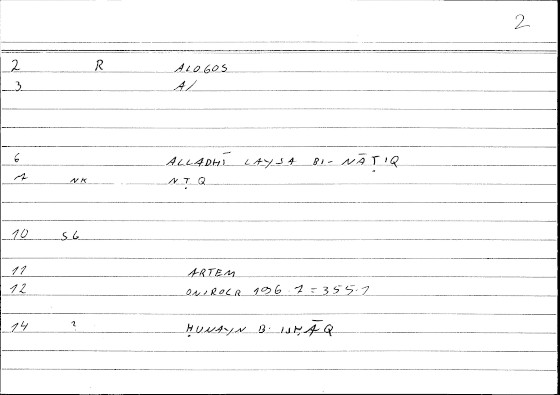 2
2 R ALOGOS
3 A/
6 ALLADHĪ LAYSA BI- NĀṬIQ
7 NK NṬQ
10 SG
11 ARTEM
12 ONIROCR 196.7 = 355.1
14 ? ḤUNAYN B. ISḤĀQ